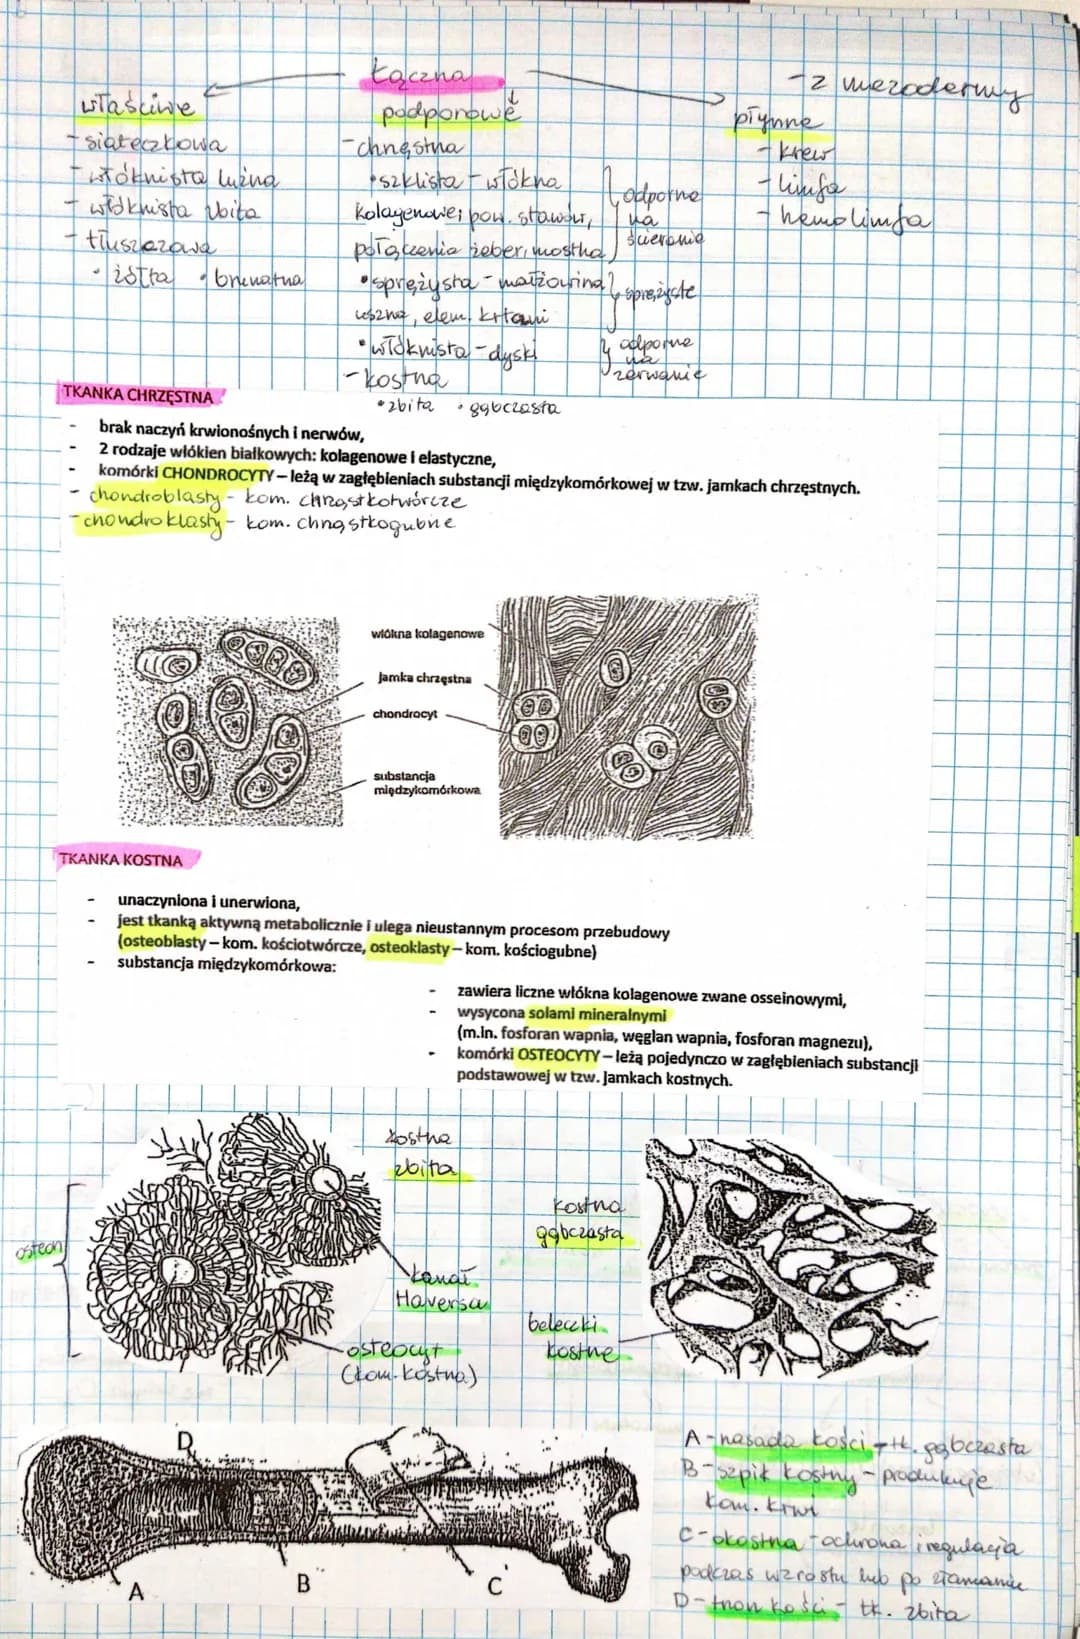 Łączna
- z mezodermy
właściwe
- siateczkowa
- włóknista luźna
- włóknista zbita
- tłuszczowa
• żółta • brunatna
podporowe
- chrzęstna
• szklista - włókna
kolagenowe; pow. stawów,
połączenia żeber, mostka
odporne
na
ścieranie
• sprężysta - małżowina
uszna, elem. krtani
sprężyste
• włóknista - dyski
odporne
na
zerwanie
- kostna
• zbita • gąbczasta
płynne
- krew
- limfa
- hemolimfa
TKANKA CHRZĘSTNA
- brak naczyń krwionośnych i nerwów,
- 2 rodzaje włókien białkowych: kolagenowe i elastyczne,
- komórki CHONDROCYTY – leżą w zagłębieniach substancji międzykomórkowej w tzw. jamkach chrzęstnych.
- chondroblasty - kom. chrząstkotwórcze
- chondroklasty - kom. chrząstkogubne
włókna kolagenowe
jamka chrzęstna
chondrocyt
substancja
międzykomórkowa
TKANKA KOSTNA
- unaczyniona i unerwiona,
- jest tkanką aktywną metabolicznie i ulega nieustannym procesom przebudowy
(osteoblasty – kom. kościotwórcze, osteoklasty – kom. kościogubne)
- substancja międzykomórkowa:
- zawiera liczne włókna kolagenowe zwane osseinowymi,
- wysycona solami mineralnymi
(m.in. fosforan wapnia, węglan wapnia, fosforan magnezu),
- komórki OSTEOCYTY – leżą pojedynczo w zagłębieniach substancji
podstawowej w tzw. jamkach kostnych.
kostna
zbita
osteon
kanał
Haversa
osteocyt
(kom. kostna)
kostna
gąbczasta
beleczki
kostne
D
A
B
C
A - nasada kości - tk. gąbczasta
B - szpik kostny - produkuje
kom. krwi
C - okostna - ochrona i regulacja
podczas wzrostu lub po złamaniu
D - trzon kości - tk. zbita